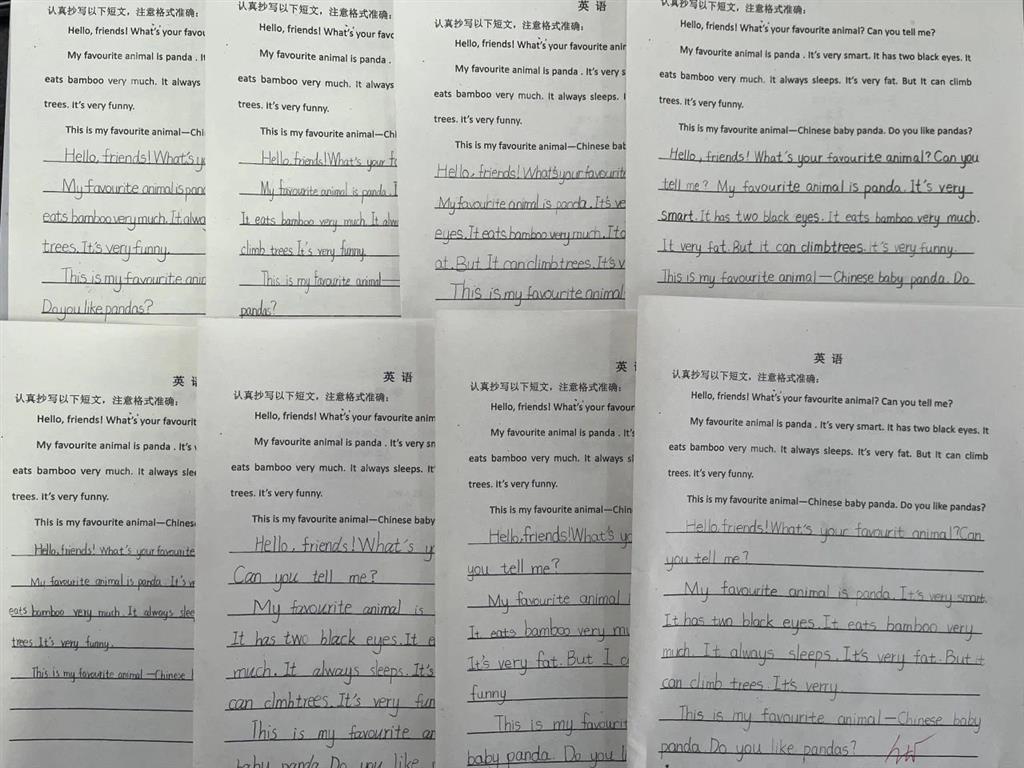 认真抄写以下短文，注意格式准确：
Hello, friends! What's your favou
My favourite animal is panda . It
eats bamboo very much. It always
trees. It's very funny.
This is my favourite animal—Chi
Hello, friends! What's y
My favourite animal is pand
eats bamboo very much. It alwa
trees. It's very funny.
This is my favourite anim
Do you like pandas?
认真抄写以下短文，注意格式准确：
Hello, friends! What's your favo
My favourite animal is panda . It
eats bamboo very much. It always
trees. It's very funny.
This is my favourite animal—Chi
Hello, friends! What's your f
My favourite animal is panda. I
It eats bamboo very much. It alw
climb trees It's very funny.
This is my favourite animal—
pandas?
英 语
认真抄写以下短文，注意格式准确：
Hello, friends! What's your favourite anir
My favourite animal is panda . It's very s
eats bamboo very much. It always sleeps. I
trees. It's very funny.
This is my favourite animal—Chinese bab
Hello, friends! What's your favourite
My favourite animal is panda. It's ve
eyes. It eats bamboo very much. It a
at. But It can climb trees. It's v
This is my favourite animal
认真抄写以下短文，注意格式准确：
Hello, friends! What's your favourite animal? Can you tell me?
My favourite animal is panda . It's very smart. It has two black eyes. It
eats bamboo very much. It always sleeps. It's very fat. But It can climb
trees. It's very funny.
This is my favourite animal—Chinese baby panda. Do you like pandas?
Hello, friends! What's your favourite animal? Can you
tell me? My favourite animal is panda. It's very
smart. It has two black eyes. It eats bamboo very much.
It very fat. But it can climb trees. it's very funny.
This is my favourite animal—Chinese baby panda. Do
英 语
认真抄写以下短文，注意格式准确：
Hello, friends! What's your favourit
My favourite animal is panda . It's v
eats bamboo very much. It always slee
trees. It's very funny.
This is my favourite animal—Chines
Hello, friends! What's your favourite
My favourite animal is panda. It's v
eats bamboo very much. It always slee
trees. It's very funny.
This is my favourite animal—Chinese
英 语
认真抄写以下短文，注意格式准确：
Hello, friends! What's your favourite anim
My favourite animal is panda . It's very sn
eats bamboo very much. It always sleeps. It'
trees. It's very funny.
This is my favourite animal—Chinese baby
Hello, friends! What's y
Can you tell me?
My favourite animal is
It has two black eyes. It e
much. It always sleeps. It's
can clmbtrees. It's very fun
This is my favourite an
baby panda. Do you like
英 语
认真抄写以下短文，注意格式准确：
Hello, friends! What's your favour
My favourite animal is panda . It's
eats bamboo very much. It always sl
trees. It's very funny.
This is my favourite animal—Chine
Hello, friends! What's yo
you tell me?
My favourite animal i
It eats bamboo very mu
It's very fat. But I c
funny
This is my favourit
baby panda. Do you l
英 语
认真抄写以下短文，注意格式准确：
Hello, friends! What's your favourite animal? Can you tell me?
My favourite animal is panda . It's very smart. It has two black eyes. It
eats bamboo very much. It always sleeps. It's very fat. But It can climb
trees. It's very funny.
This is my favourite animal—Chinese baby panda. Do you like pandas?
Hello, friends! What's your favourit animal? Can
you tell me?
My favourite animal is panda. It's very smart.
It has two black eyes. It eats bamboo very
much. It always sleeps. It's very fat. But it
can climb trees. It's verry
This is my favourite animal—Chinese baby
panda. Do you like pandas?